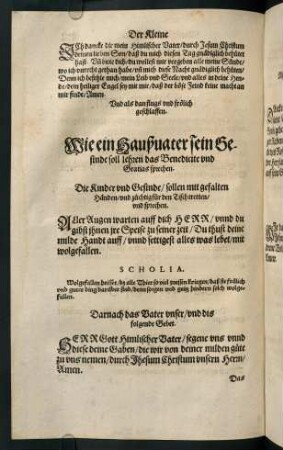 Der Kleine
ICh dancke dir mein Himlischer Vater / durch Jesum Christum
deinen lieben Son / daß du mich diesen Tag gnädiglich behütet
hast. Vñ bitte dich / du wollest mir vergeben alle meine Sünde /
wo ich vnrecht gethan habe / vñ mich diese Nacht gnädiglich behüten /
Denn ich befehle mich mein Leib vnd Seele / vnd alles in deine Hen-
de / dein heiliger Engel sey mit mir / daß der böse Feind keine macht an
mir finde / Amen.
Vnd als dann flugs vnd frölich
geschlaffen.
Wie ein Haußuater sein Ge-
sinde soll lehren das Benedicite vnd
Gratias sprechen.
Die Kinder vnd Gesinde / sollen mit gefalten
Händen / vnd züchtig für den Tisch tretten /
vnd sprechen.
ALler Augen warten auff dich HERR / vnnd du
gibst jhnen jre Speise zu seiner zeit / Du thust deine
milde Handt auff / vnnd settigest alles was lebet / mit
wolgefallen.
SCHOLIA.
Wolgefallen heisset / dz alle Thier so viel zuessen kriegen / daß sie frölich
vnd guter ding darüber sind / denn sorgen vnd geitz hindern solch wolge-
fallen.
Darnach das Vater vnser / vnd dis
folgende Gebet.
HERR Gott Himlischer Vater / segene vns vnnd
diese deine Gaben / die wir von deiner milden güte
zu vns nemen / durch Jhesum Christum vnsern Herrn /
Amen.
Das